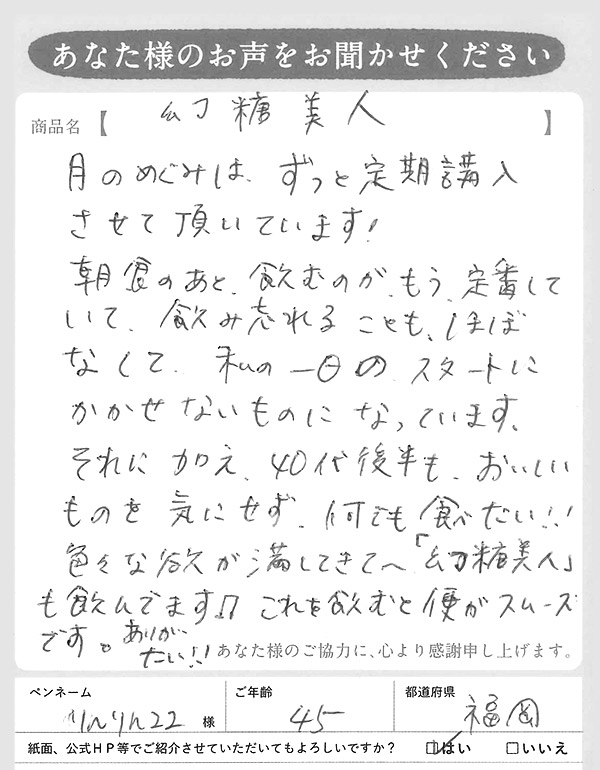 あなた様のお声をお聞かせください
商品名【 幻糖美人 】
月のめぐみは、ずっと定期購入
させて頂いています!
朝食のあと、飲むのが、もう、定番して
いて、飲み忘れることも、ほぼ
なくて、私の一日のスタートに
かかせないものになっています。
それに加え、40代後半も、おいしい
ものを気にせず、何でも食べたい!!
色々な欲が満してきて〜「幻糖美人」
も飲んでます!! これを飲むと便がスムーズ
です。ありが
たい!!
あなた様のご協力に、心より感謝申し上げます。
ペンネーム ご年齢 都道府県
りんりん22 様 45 福岡
紙面、公式HP等でご紹介させていただいてもよろしいですか? ☑はい □いいえ